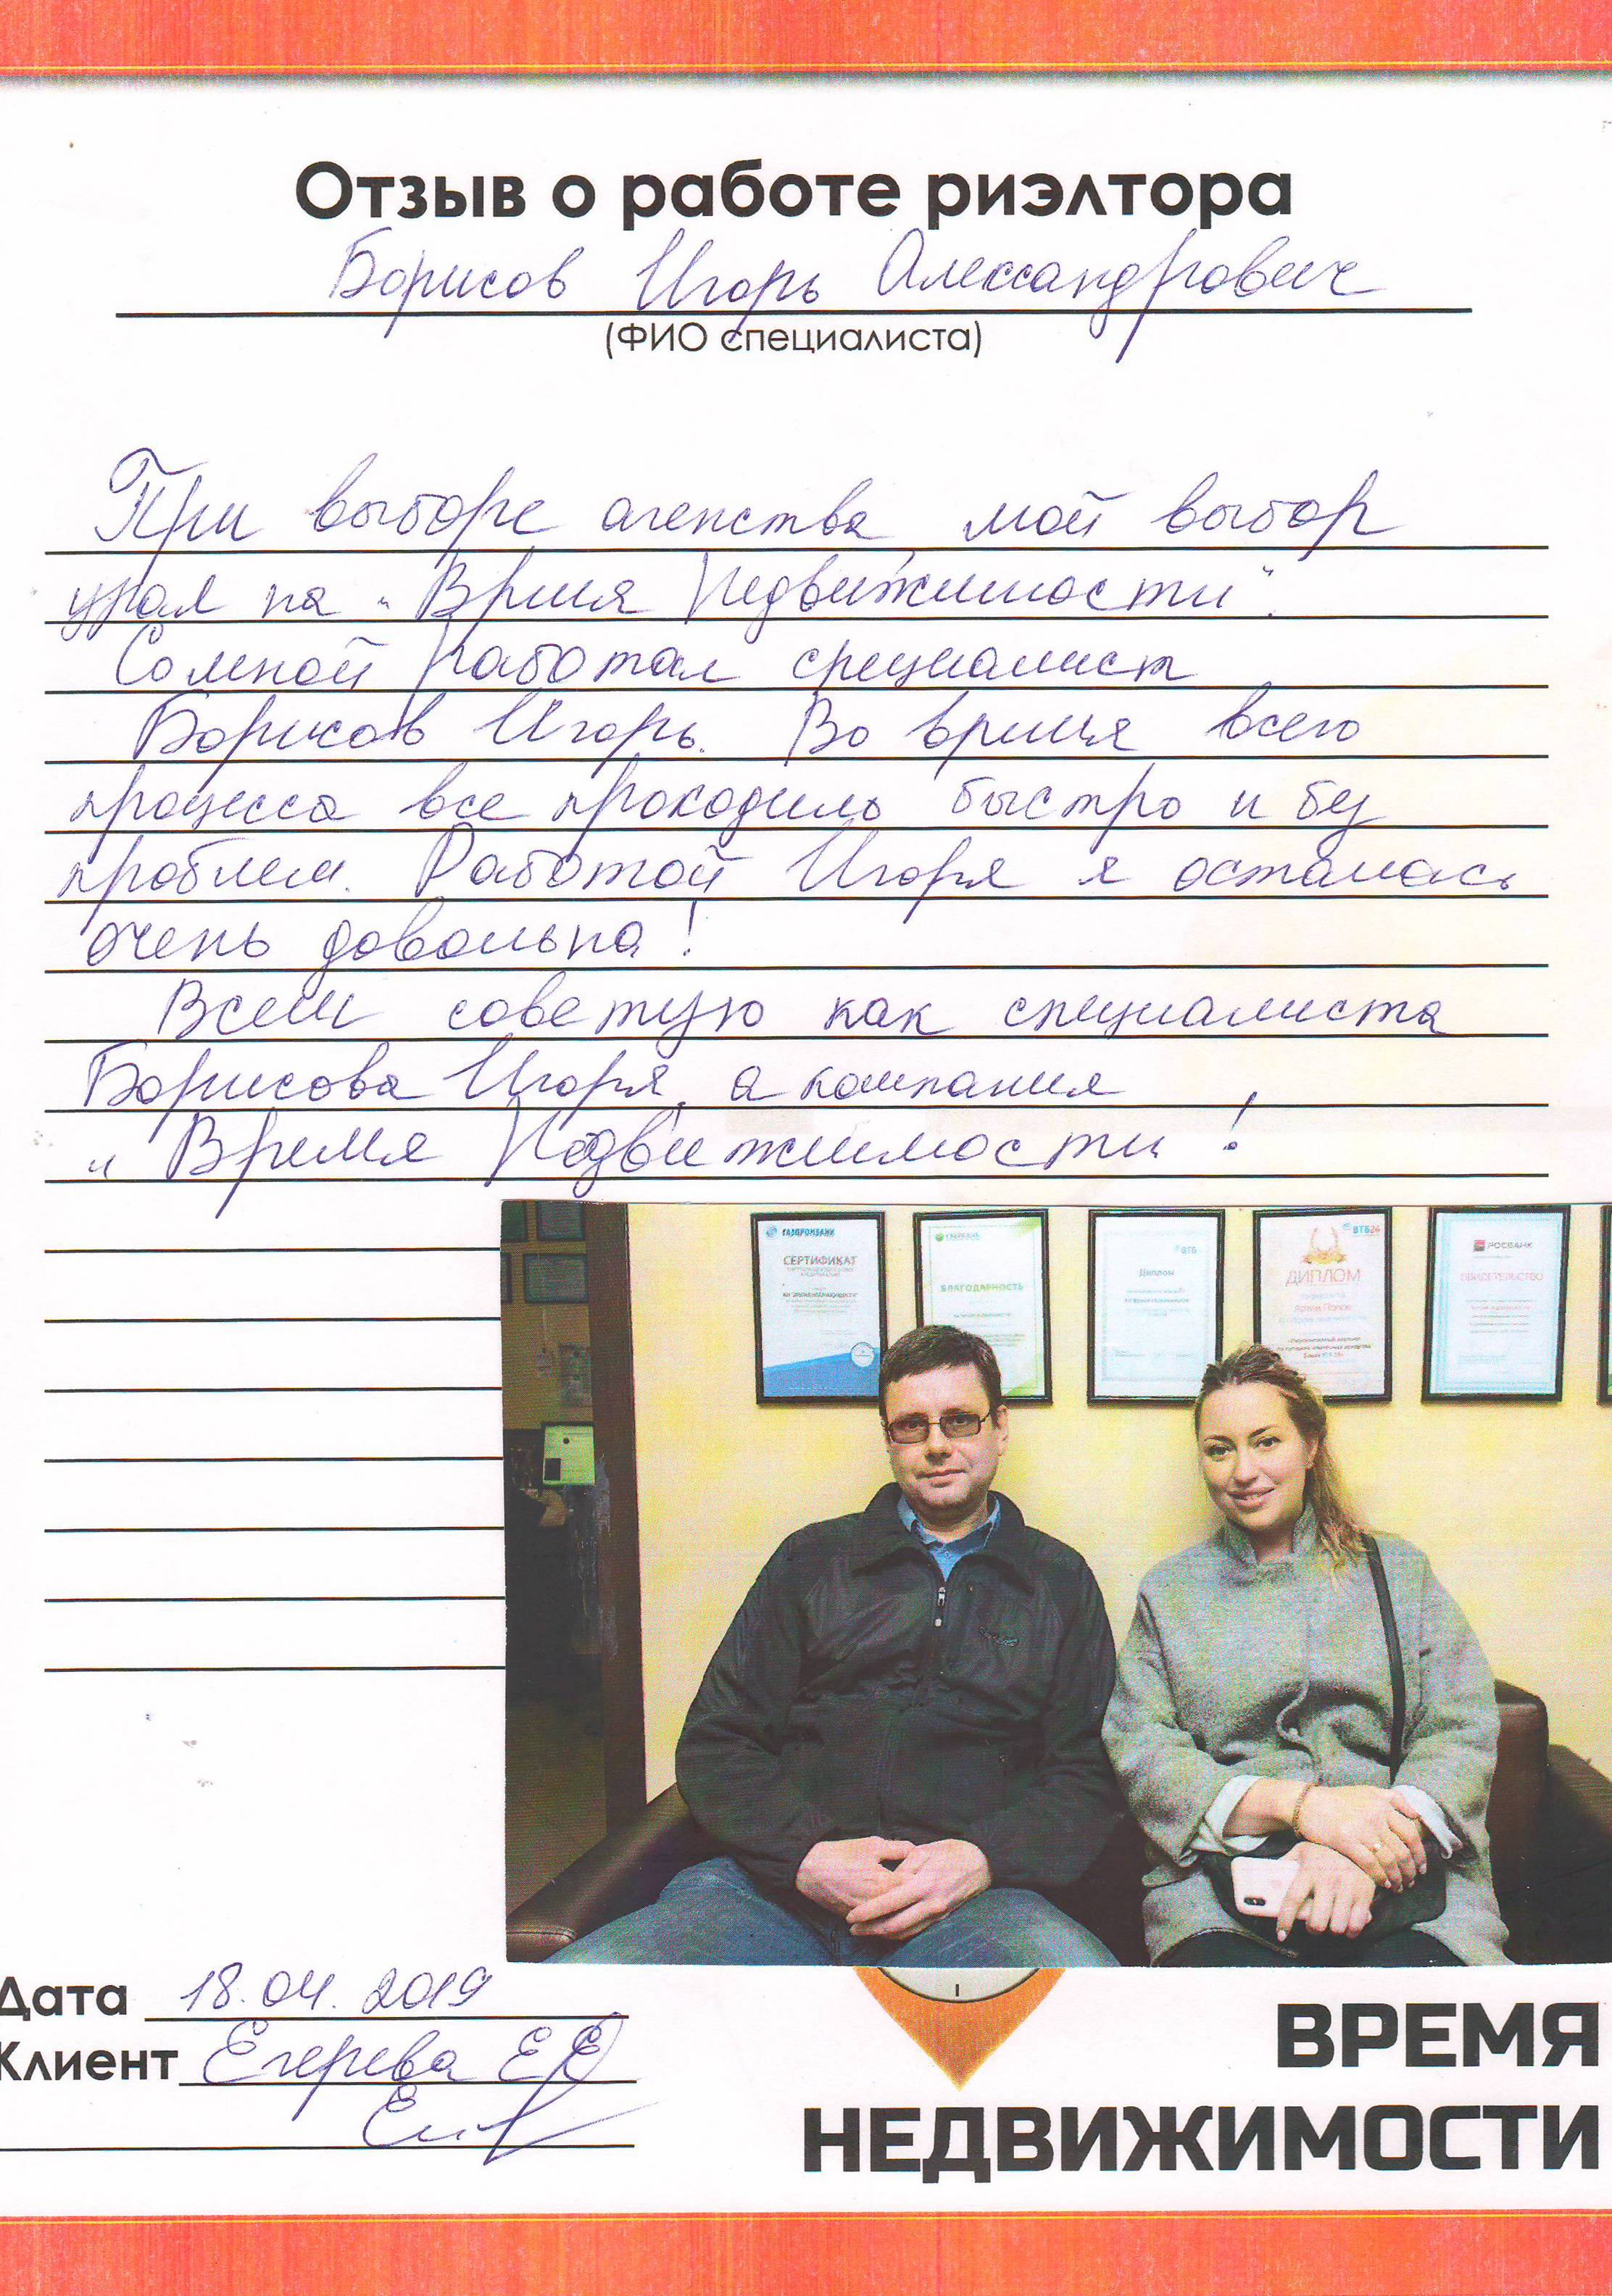 Отзыв о работе риэлтора
Борисов Игорь Александрович
(ФИО специалиста)
При выборе агенства, мой выбор
упал на "Время Недвижимости".
Со мной работал специалист
Борисов Игорь. Во время всего
процесса все проходило быстро и без
проблем. Работой Игоря я осталась
очень довольна!
Всем советую как специалиста
Борисова Игоря, а компания
"Время Недвижимости!
ГАЗПРОМБАНК
СЕРТИФИКАТ
СБЕРБАНК
БЛАГОДАРНОСТЬ
ВТБ
Диплом
ВТБ24
ДИПЛОМ
РОСБАНК
СВИДЕТЕЛЬСТВО
Дата 18.04.2019
Клиент Егерева Е.Е
ВРЕМЯ
НЕДВИЖИМОСТИ